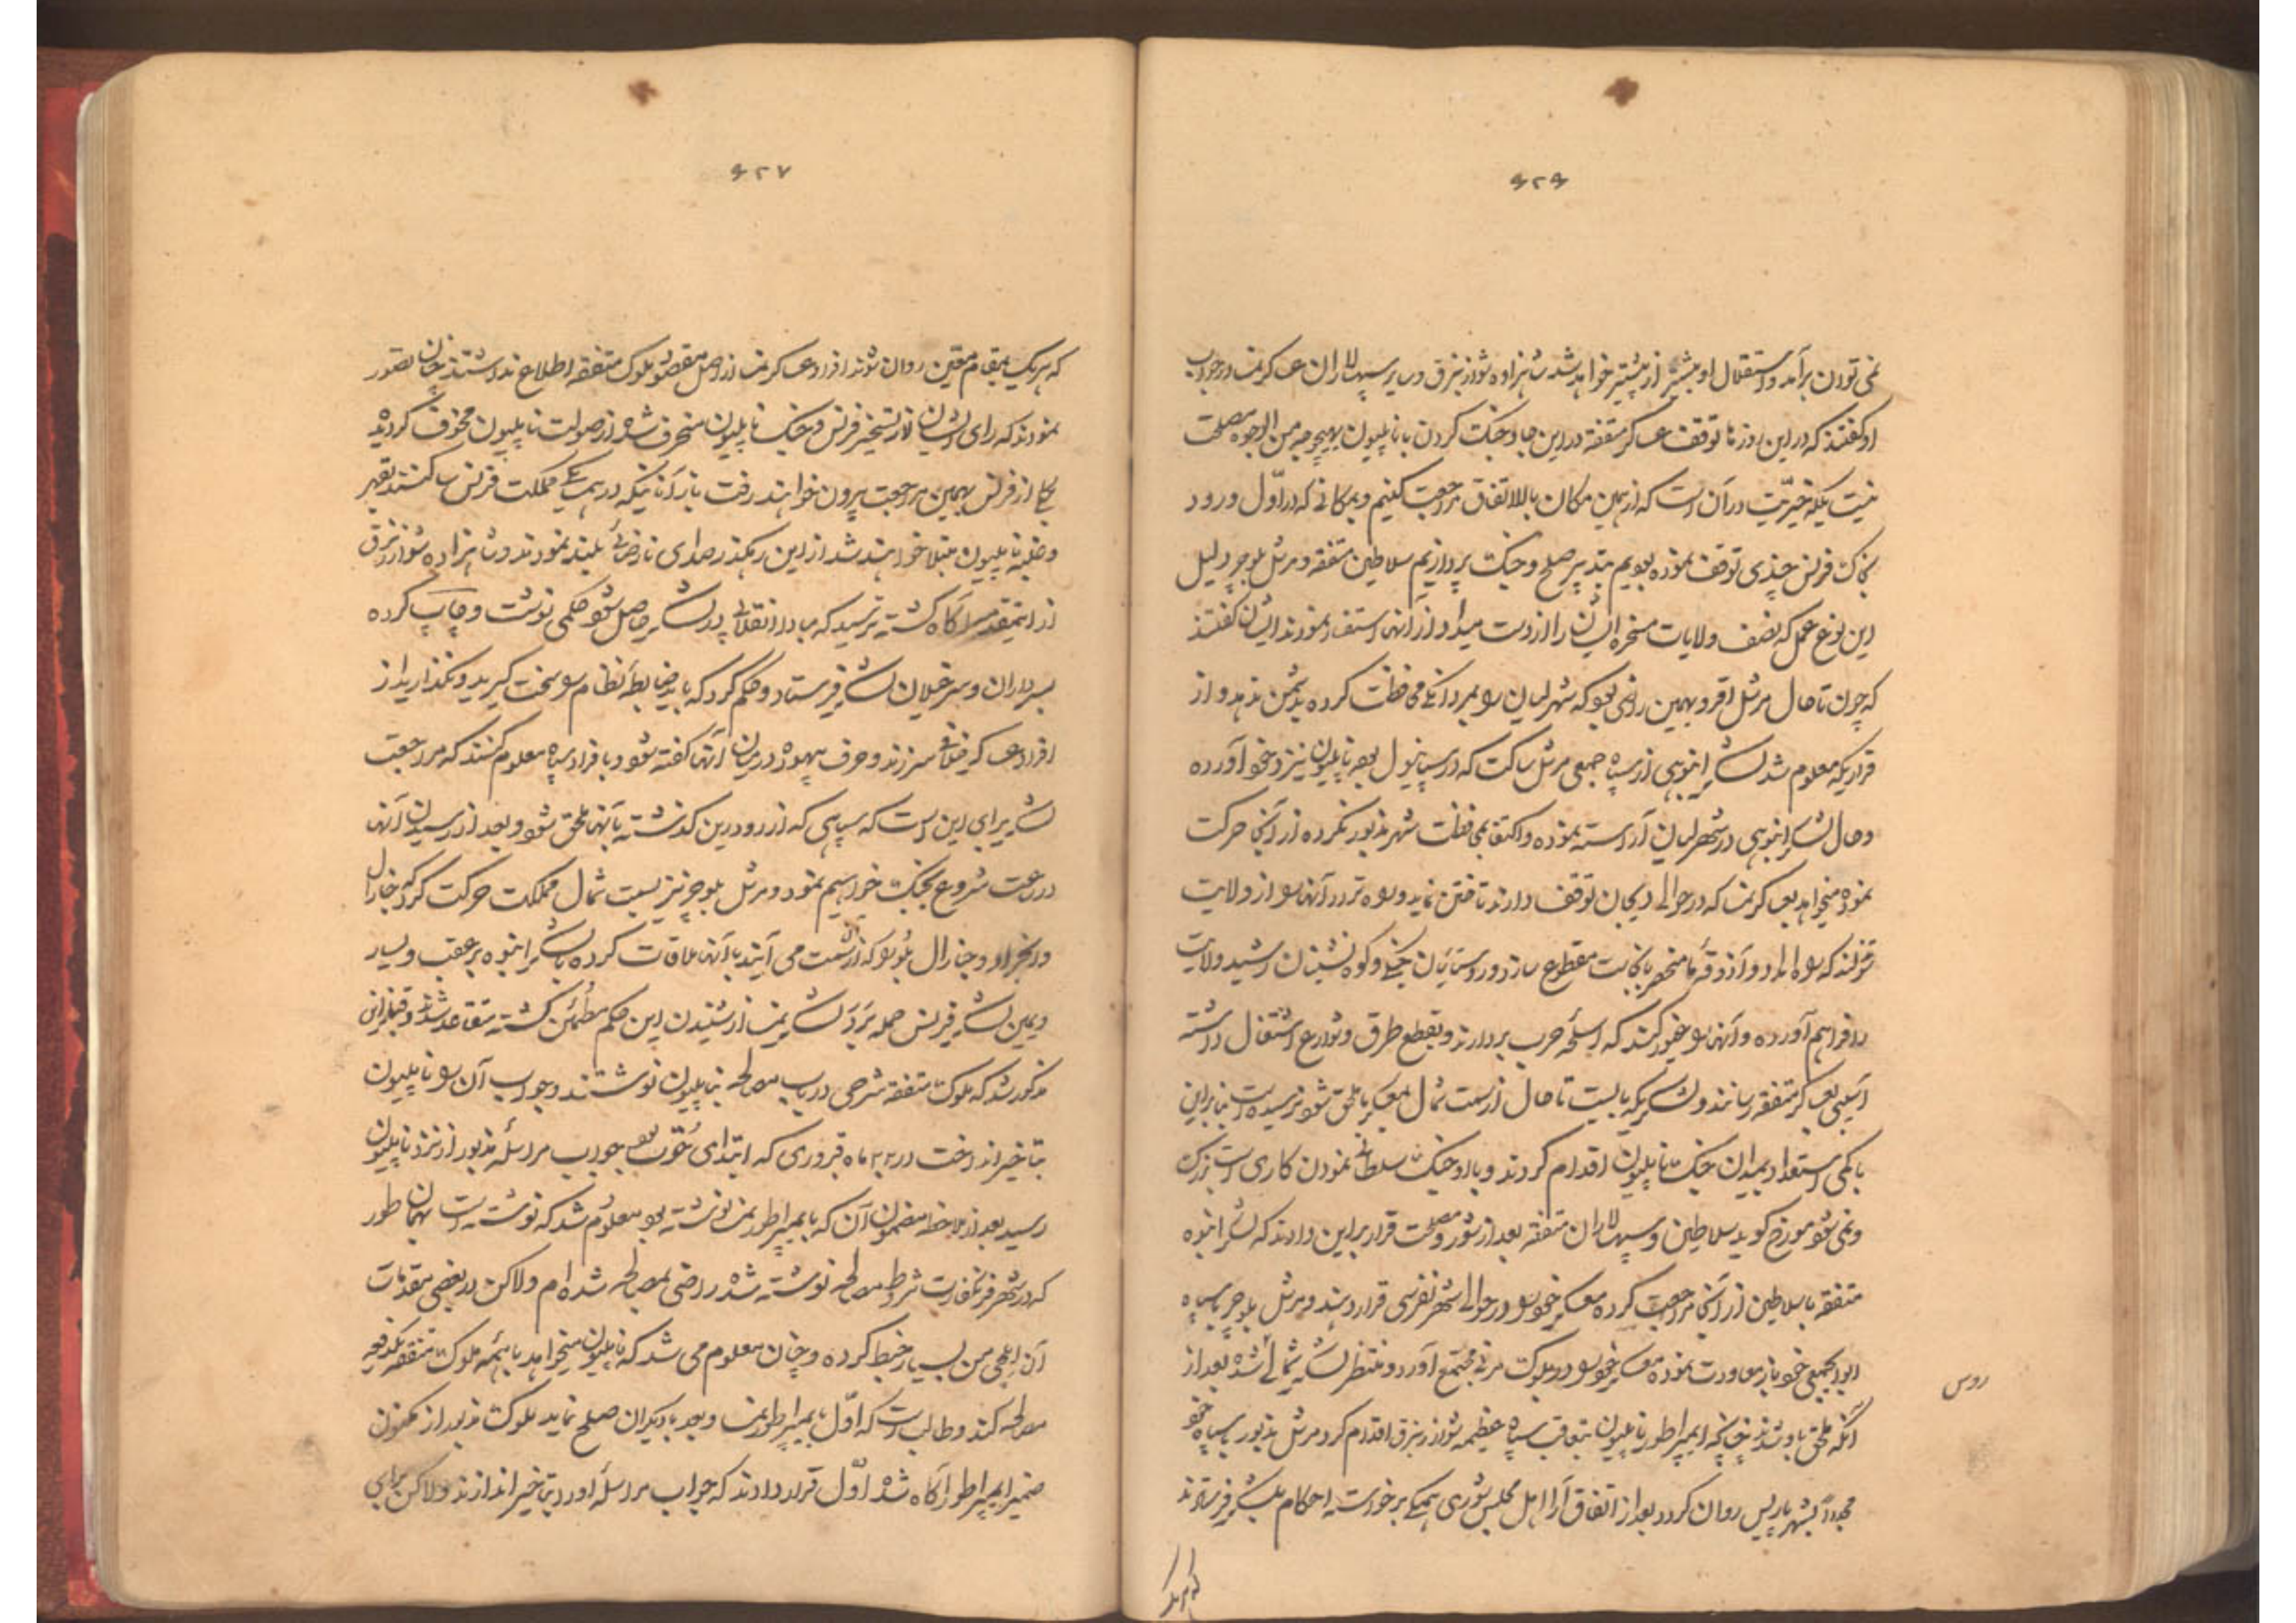 ۶۲۶
نمی‌توان برآمد و استقلال او بیشتر از پیشتر خواهد شد شاهزاده شوارزنبرق و سایر سپهسالاران عساکر نمسا در جواب
او گفتند که در این روزها توقف عساکر متفقه در این جا و جنگ کردن با ناپلیون بهیچوجه من الوجوه مصلحت
نیست بلکه خیریت در آن است که از همین مکان بالاتفاق مراجعت کنیم و بمکانی که در اول ورود
بخاک فرنس چندی توقف نموده بودیم بتدبیر صلح و جنگ پردازیم سلاطین متفقه و مرشل بلوچر دلیل
این نوع عمل که نصف ولایات مسخره ایشان را از دست میداد از آنها استفسار نمودند ایشان گفتند
که چون تا حال مرشل اقرو بهمین راضی بود که شهر لیان را بمردانگی محافظت کرده بدشمن ندهد و از
قراریکه معلوم شد لشکر انبوهی از سپاه جمعی مرشل ساکت که در سپانیول بود ناپلیون نیز نزد خود آورده
و حال لشکر انبوهی در شهر لیان آراسته نموده و اکتفا بمحافظت شهر مذبور نکرده از آنجا حرکت
نموده میخواهد بعساکر نمسا که در حوالی دیجان توقف دارند تاختن نماید و راه تردد آنها را از ولایت
که راه امداد و آذوقه ما منحصر بآنجاست مقطوع سازد و روستائیان جنگی و کوه نشینان رشید ولایت
را فراهم آورده و آنها را غیور کند که اسلحه حرب بردارند و بقطع طرق و شوارع اشتغال داشته
آسیبی بعساکر متفقه رسانند و لشکریکه بایست تا حال از سمت شمال بعساکر ما ملحق شود نرسیده است بنابراین
با کمی استعداد بمیدان جنگ ناپلیون اقدام کردند و با او جنگ سلطانی نمودن کاری است بزرگ
و نمی‌شود مورخ گوید سلاطین و سپهسالاران متفقه بعد از شور و مصلحت قرار بر این دادند که لشکر انبوه
متفقه با سلاطین از آنجا مراجعت کرده معسکر خود را در حوالی شهر قرار دهند و مرشل بلوچر با سپاه
ابوابجمعی خود باز معاودت نموده معسکر خود را در مجتمع آورد و منتظر لشکر شمالی شده بعد از
روس
آنکه ملحق باو شدند چنانچه ایمپراطور ناپلیون بتعاقب سپاه عظیمه شوارزنبرق اقدام کرد مرشل مذبور با سپاه خود
مجدداً بشهر پاریس روان گردد بعد از اتفاق آرا اهل مجلس شوری همگی برخواسته احکام بلشکر فرستادند
که هریک
۶۲۷
که هریک بمقام معین روان شوند افراد عساکر نمسا از اصل مقصود ملوک متفقه اطلاع نداشتند چنان تصور
نمودند که رای ایشان از تسخیر فرنس و جنگ ناپلیون منحرف شده از صولت ناپلیون مخوف گردیده
یکجا از فرنس بهمین مراجعت بیرون خواهند رفت باز آنانیکه در همسایگی مملکت فرنس ساکنند بقهر
و غلبه ناپلیون مبتلا خواهند شد از این رهگذر صدای نارضائی بلند نمودند و شاهزاده شوارزنبرق
از اینمقدمه آگاه گشته ترسید که مبادا انقلابی در لشکر حاصل شود حکمی نوشت و چاپ کرده
بسرداران و سرخیلان لشکر فرستاد و حکم کرد که باید ضابطه نظام را سخت گیرید و نگذارید از
افراد عساکر خلافی سرزند و حرف بیهوده در میان آنها گفته شود و بافراد سپاه معلوم کنند که مراجعت
لشکر برای این است که سپاهی که از رود رین گذشته بآنها ملحق شود و بعد از رسیدن آنها
در ساعت شروع بجنگ خواهیم نمود و مرشل بلوچر نیز بسمت شمال مملکت حرکت کرد که جنارال
و جنارال بلو را که از آن سمت می‌آیند با آنها ملاقات کرده با لشکر انبوه بر عقب و یسار
و یمین لشکر فرنس حمله برد لشکر نمسا از شنیدن این حکم مطمئن گشته متقاعد شدند و قبل از این
مذکور شد که ملوک متفقه شرحی در باب مصالحه بناپلیون نوشتند و جواب آن را ناپلیون
بتاخیر انداخت در ۲۲ ماه فبروری که ابتدای حوت بود جواب مراسله مذبور از نزد ناپلیون
رسید بعد از ملاحظه مضمون آن که بایمپراطور نمسا نوشته بود معلوم شد که نوشته است بهمان طور
که در شهر فرنکفارت شروط مصالحه نوشته شده راضی بمصالحه شده‌ام ولاکن در بعضی مقدمات
آن ایلچی من بسیار خبط کرده و چنان معلوم می‌شد که ناپلیون میخواهد با همه ملوک متفقه یکدفعه
مصالحه کند و طالب است که اول با ایمپراطور نمسا و بعد با دیگران صلح نماید ملوک مذبور از مکنون
ضمیر ایمپراطور آگاه شده اول قرار دادند که جواب مراسله او را بتاخیر اندازند ولاکن برای